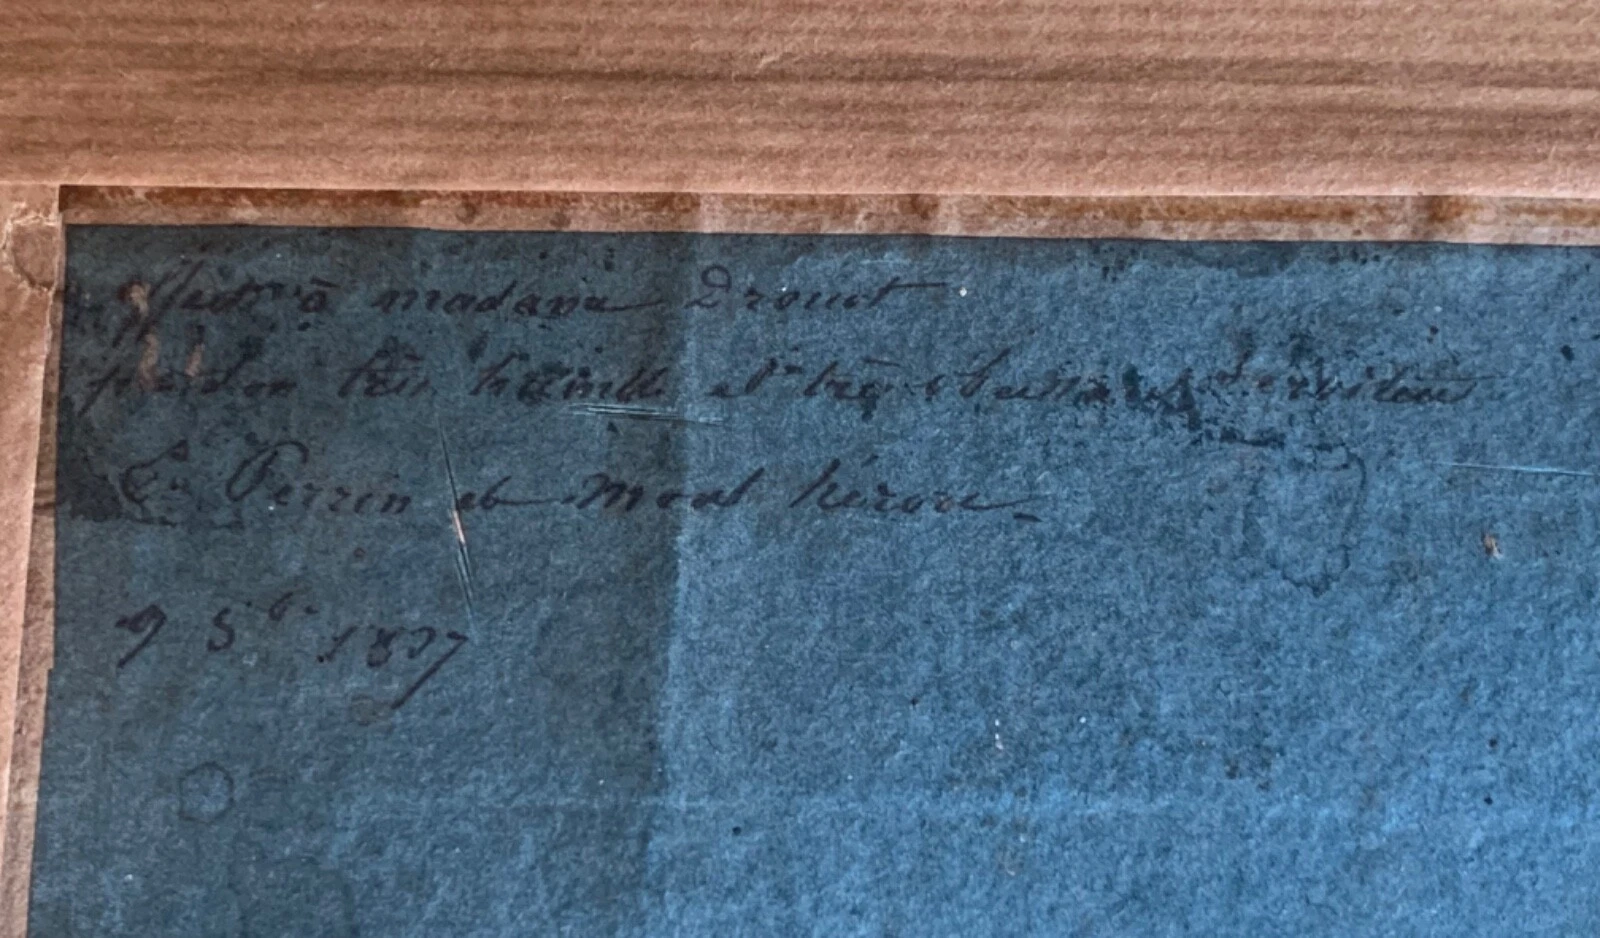 offert à madame Drouot
par son très humble et très obéissant serviteur
Ls Perrin de Mont hérou
9 5b. 1827